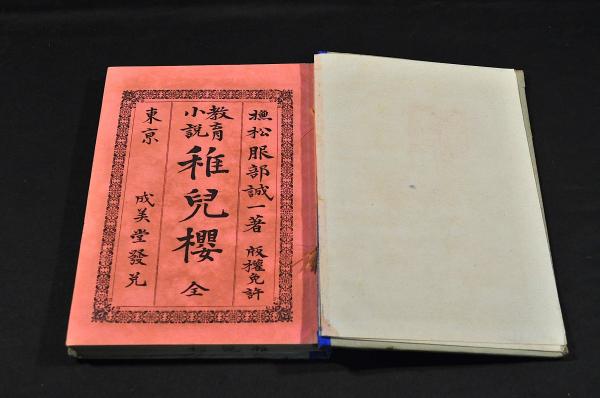 撫松服部誠一著 版權免許
教育
小說
稚兒櫻 全
東京
成美堂發兌